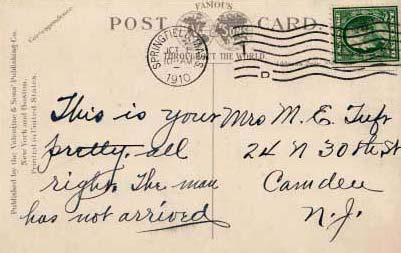 FAMOUS
POST CARD.
THROUGHOUT THE WORLD.
Correspondence.
Published by the Valentine & Sons' Publishing Co.
New York and Boston.
Printed in United States.
SPRINGFIELD, MASS.
OCT
1910
D
This is your
pretty. all
right. The man
has not arrived
Mrs M. E. Tuft
24 N 30th St
Camden
N.J.